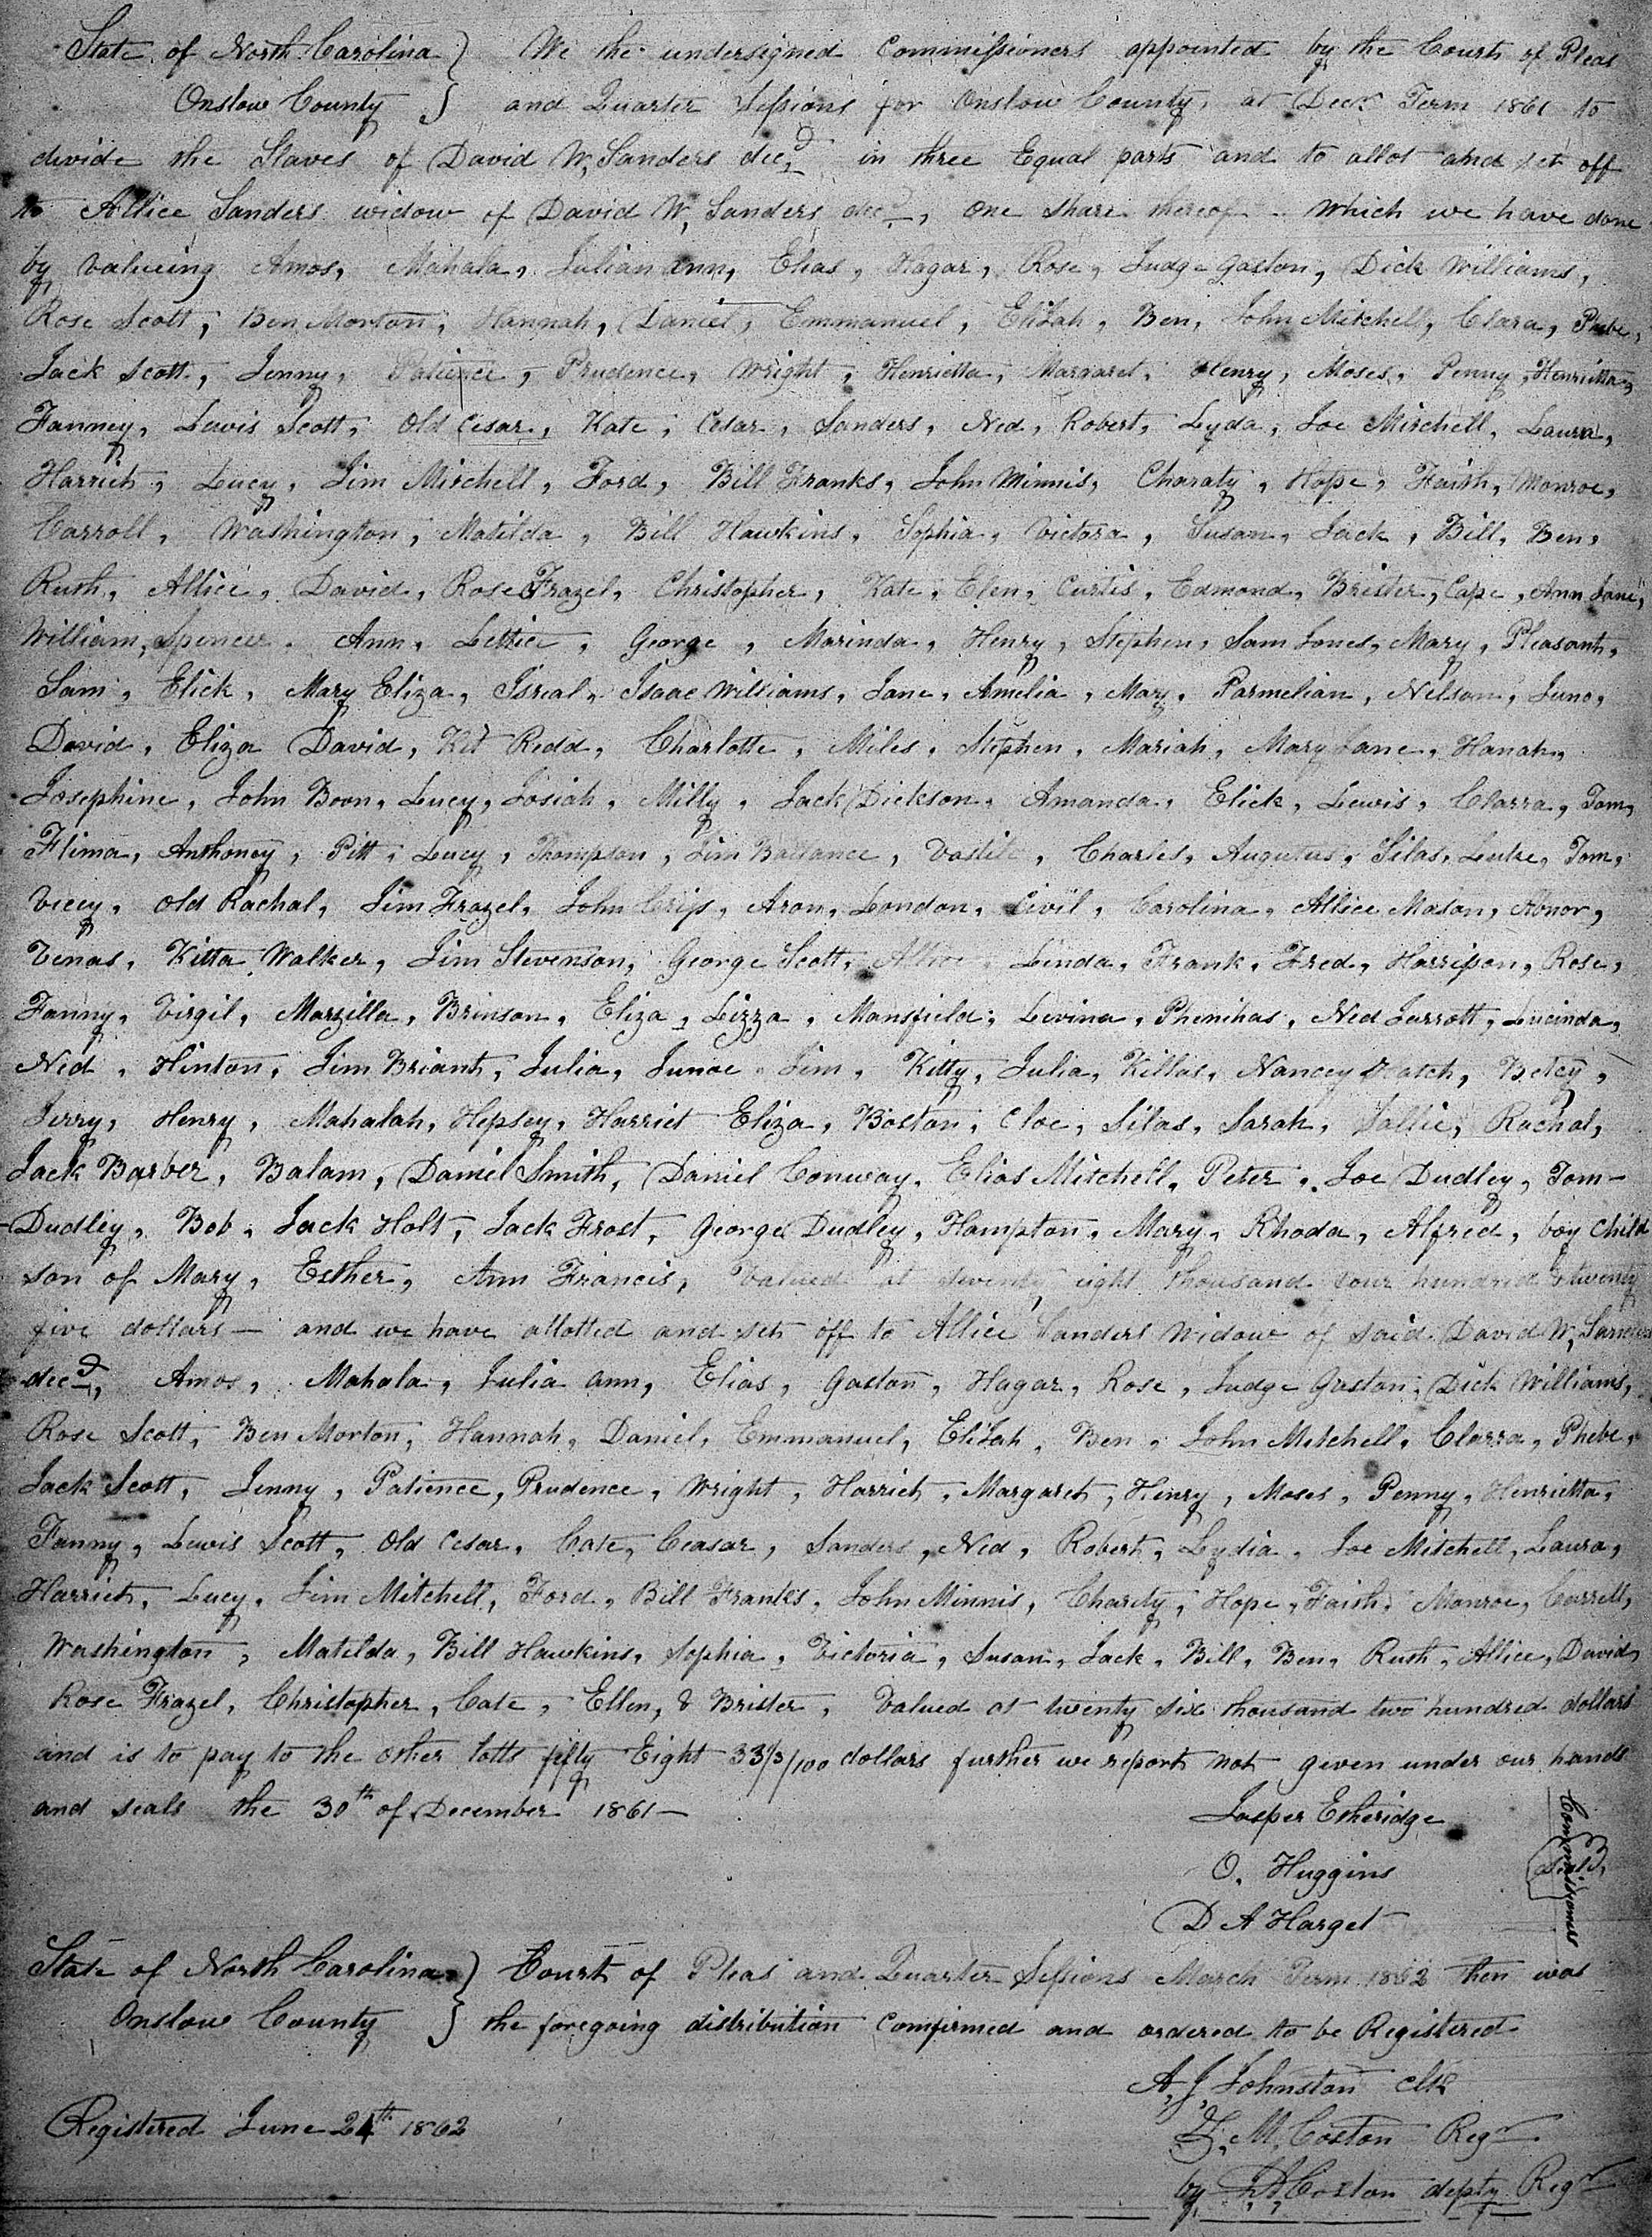 State of North Carolina } We the undersigned Commissioners appointed by the Court of Pleas
Onslow County } and Quarter Sessions for Onslow County, at Decr Term 1861 to
devide the Slaves of David W, Sanders decd in three Equal parts and to allot and set off
to Allice Sanders widow of David W, Sanders decd, one share thereof - Which we have done
by valueing Amos, Mahala, Julian ann, Elias, Hagar, Rose, Judge Gaston, Dick Williams,
Rose Scott, Ben Morton, Hannah, Daniel, Emmanuel, Elijah, Ben, John Mitchell, Clara, Phebe,
Jack Scott, Jenny, Patience, Prudence, Wright, Henrietta, Margaret, Henry, Moses, Penny, Henrietta,
Fanney, Lewis Scott, Old Cesar, Kate, Cesar, Sanders, Ned, Robert, Lyda, Joe Mitchell, Laura,
Harriet, Lucy, Jim Mitchell, Ford, Bill Franks, John Minnis, Charaty, Hope, Faith, Monroe,
Carroll, Washington, Matilda, Bill Hawkins, Sophia, Victora, Susan, Jack, Bill, Ben,
Ruth, Allice, David, Rose Frazel, Christopher, Kate, Elen, Curtis, Edmond, Brister, Cape, Ann Jane,
William, Spencer, Ann, Lettice, George, Marinda, Henry, Stephen, Sam Jones, Mary, Pleasant,
Sam, Elick, Mary Eliza, Isreal, Isaac Williams, Jane, Amelia, Mary, Parmelian, Nelson, Juno,
David, Eliza David, Kit Redd, Charlotte, Miles, Stephen, Mariah, Mary Jane, Hanah,
Josephine, John Boon, Lucy, Josiah, Milly, Jack Dickson, Amanda, Elick, Lewis, Clarra, Tom,
Flima, Anthoney, Pitt, Lucy, Thompson, Jim Ballance, Vastile, Charles, Augutus, Silas, Luke, Tom,
Vicey, Old Rachal, Jim Frazel, John Crips, Aron, London, Civil, Carolina, Allice Mason, Abnor,
Venas, Kitta Walker, Jim Stevenson, George Scott, Allice, Linda, Frank, Fred, Harrison, Rose,
Fanny, Virgil, Marzilla, Brinson, Eliza, Lizza, Mansfield, Levina, Phenihas, Ned Jarrott, Lucinda,
Ned, Hinton, Jim Briant, Julia, Junoe Jim, Kitty, Julia, Killas, Nancey Hatch, Betcy,
Jerry, Henry, Mahalah, Hepsey, Harriet Eliza, Boston, Cloe, Silas, Sarah, Sallie, Rachal,
Jack Barber, Balam, Daniel Smith, Daniel Conway, Elias Mitchell, Peter, Joe Dudley, Tom-
Dudley, Bob, Jack Holt, Jack Frost, George Dudley, Hampton, Mary, Rhoda, Alfred, boy child
son of Mary, Esther, Ann Francis, Valued at seventy eight thousand four hundred & twenty
five dollars - and we have allotted and set off to Allice Sanders widow of said David W, Sanders
decd, Amos, Mahala, Julia ann, Elias, Gaston, Hagar, Rose, Judge Gaston, Dick Williams,
Rose Scott, Ben Morton, Hannah, Daniel, Emmanuel, Elijah, Ben, John Mitchell, Clarra, Phebe,
Jack Scott, Jenny, Patience, Prudence, Wright, Harriet, Margaret, Henry, Moses, Penny, Henrietta,
Fanny, Lewis Scott, Old Cesar, Cate, Ceasar, Sanders, Ned, Robert, Lydia, Joe Mitchell, Laura,
Harriet, Lucy, Jim Mitchell, Ford, Bill Franks, John Minnis, Charity, Hope, Faith, Monroe, Carrell,
Washington, Matilda, Bill Hawkins, Sophia, Victoria, Susan, Jack, Bill, Ben, Ruth, Allice, David,
Rose Frazel, Christopher, Cate, Ellen, & Brister, Valued at twenty six thousand two hundred dollars
and is to pay to the other lotts fifty Eight 33⅓/100 dollars further we report not given under our hands
and seals the 30th of December 1861-
Jasper Etheridge
O. Huggins
D A Harget
Commissioners
Seals
State of North Carolina } Court of Pleas and Quarter Sessions March Term 1862 then was
Onslow County } the foregoing distribution Comfirmed and ordered to be Registered
A, J, Johnston Clk
Registered June 24th 1862
Z, M, Coston Regr
by J, A, Coston depty Regr